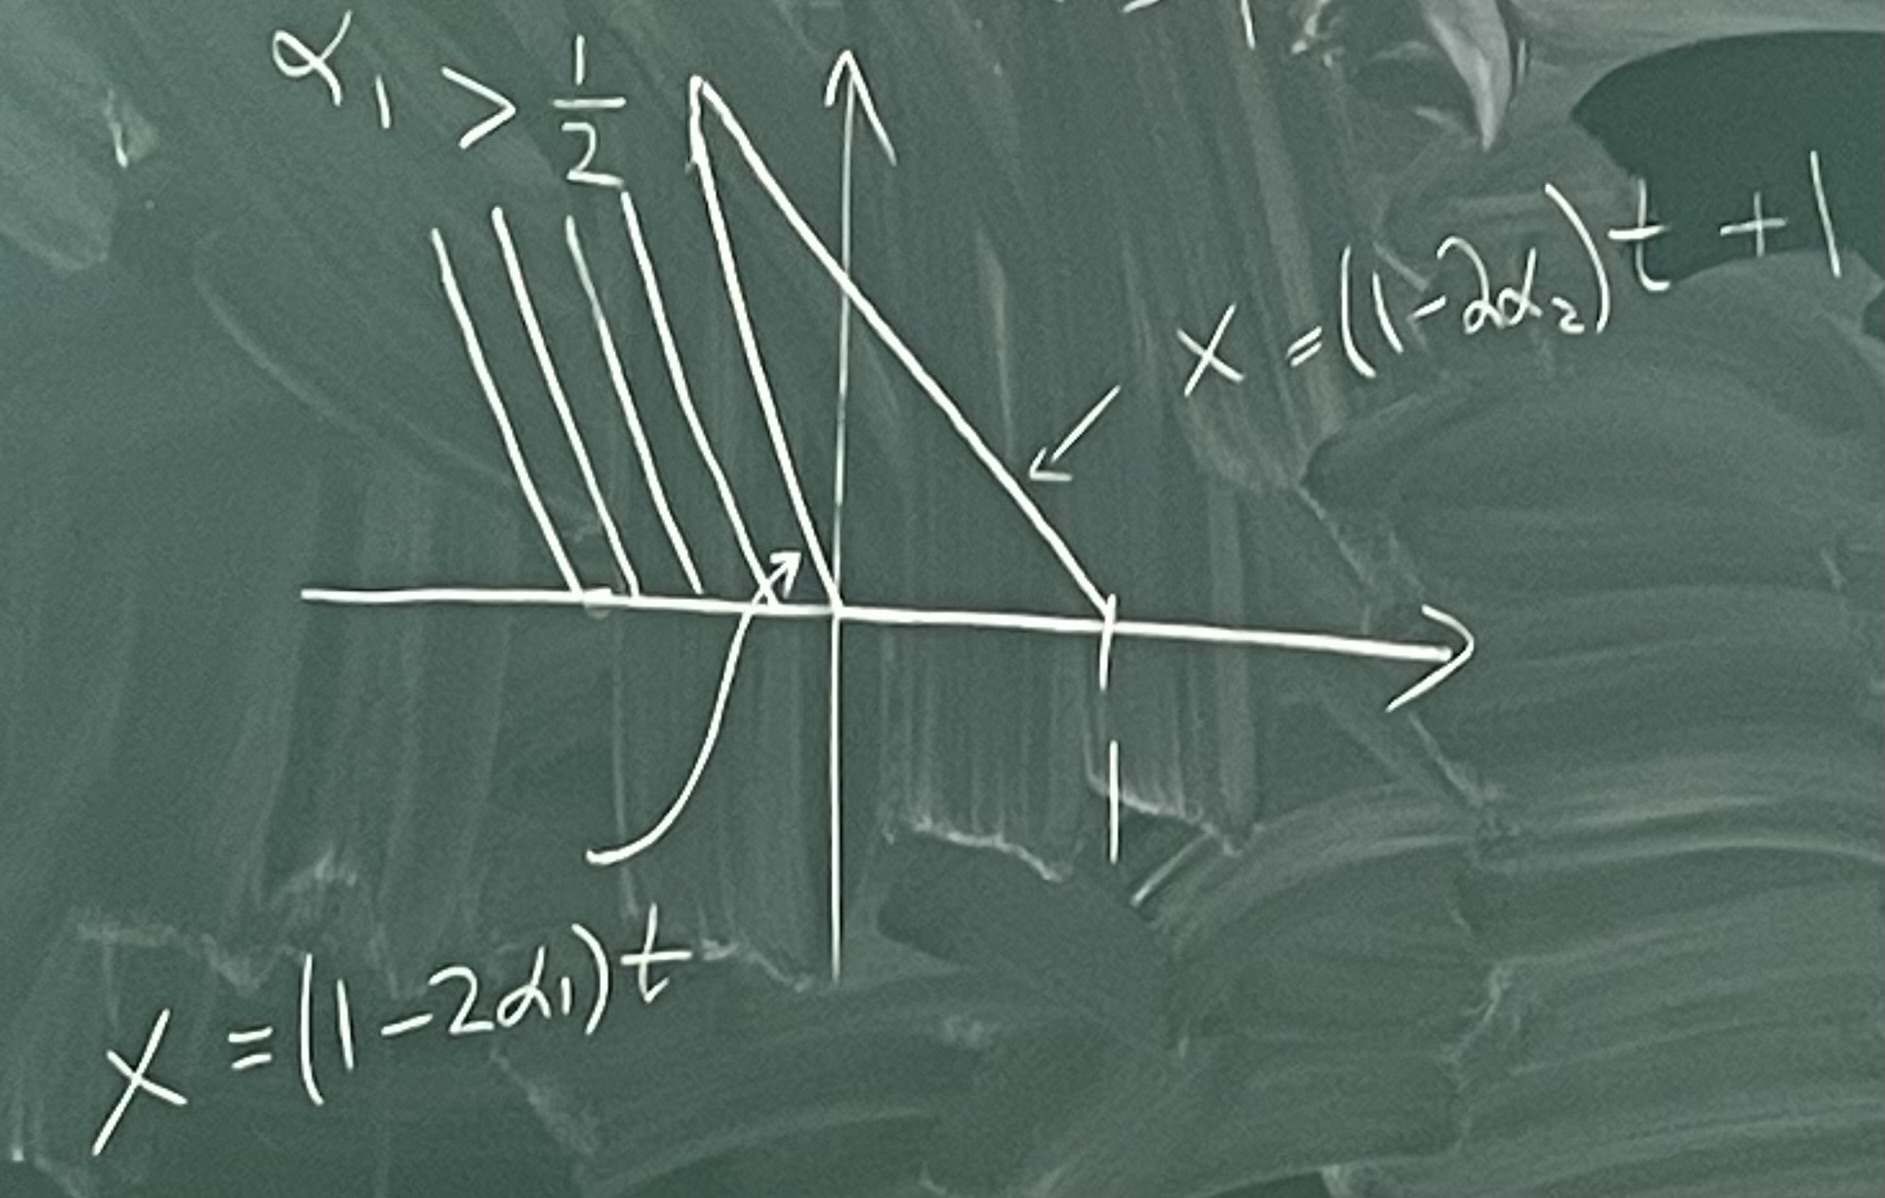 α₁ > 1/2
x = (1-2α₂)t + 1
x = (1-2α₁)t